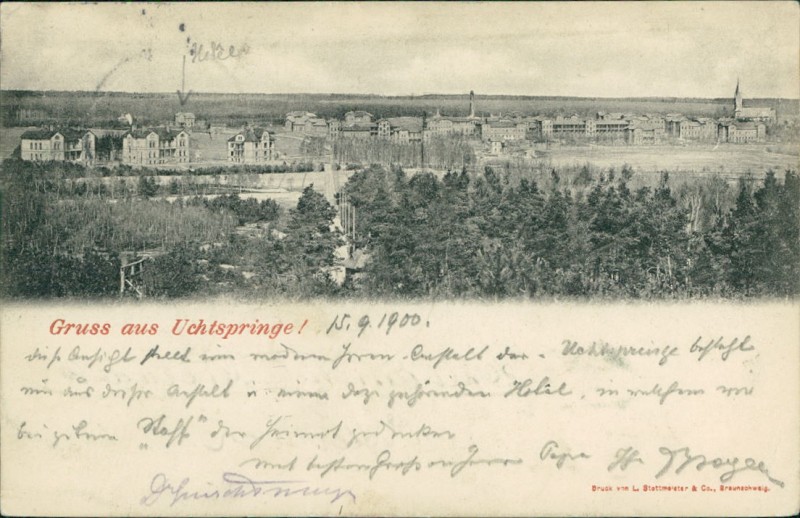 Hotel
Gruss aus Uchtspringe! 15.9.1900.
diese Ansicht stellt eine moderne Irren-Anstalt dar. Uchtspringe besteht
nur aus dieser Anstalt u. einem dazu gehörenden Hotel, in welchem wir
bei gutem "Stoff" der Heimat gedenken
mit besten Grüßen Ihr
Druck von L. Stottmeister & Co., Braunschweig.